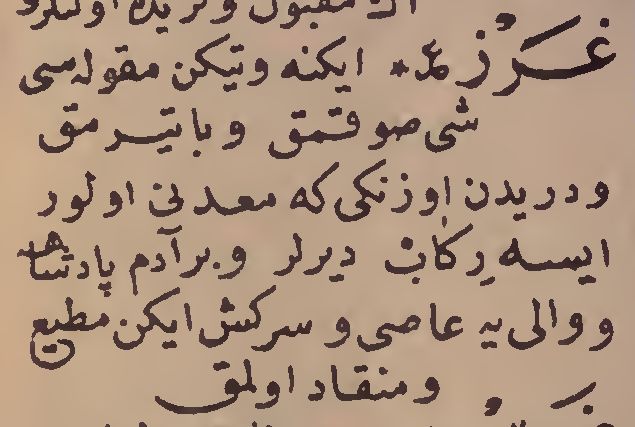 مقبول و گزیده اولنلر
غَرْز ع * ایکنه و تیکن مقوله سی
شی صوقمق و باتیرمق
و دریدن اوزنکی که معدنی اولور
ایسه رِکاب دیرلر و بر آدم پادشاهه
و والی یه عاصی و سرکش ایکن مطیع
و منقاد اولمق